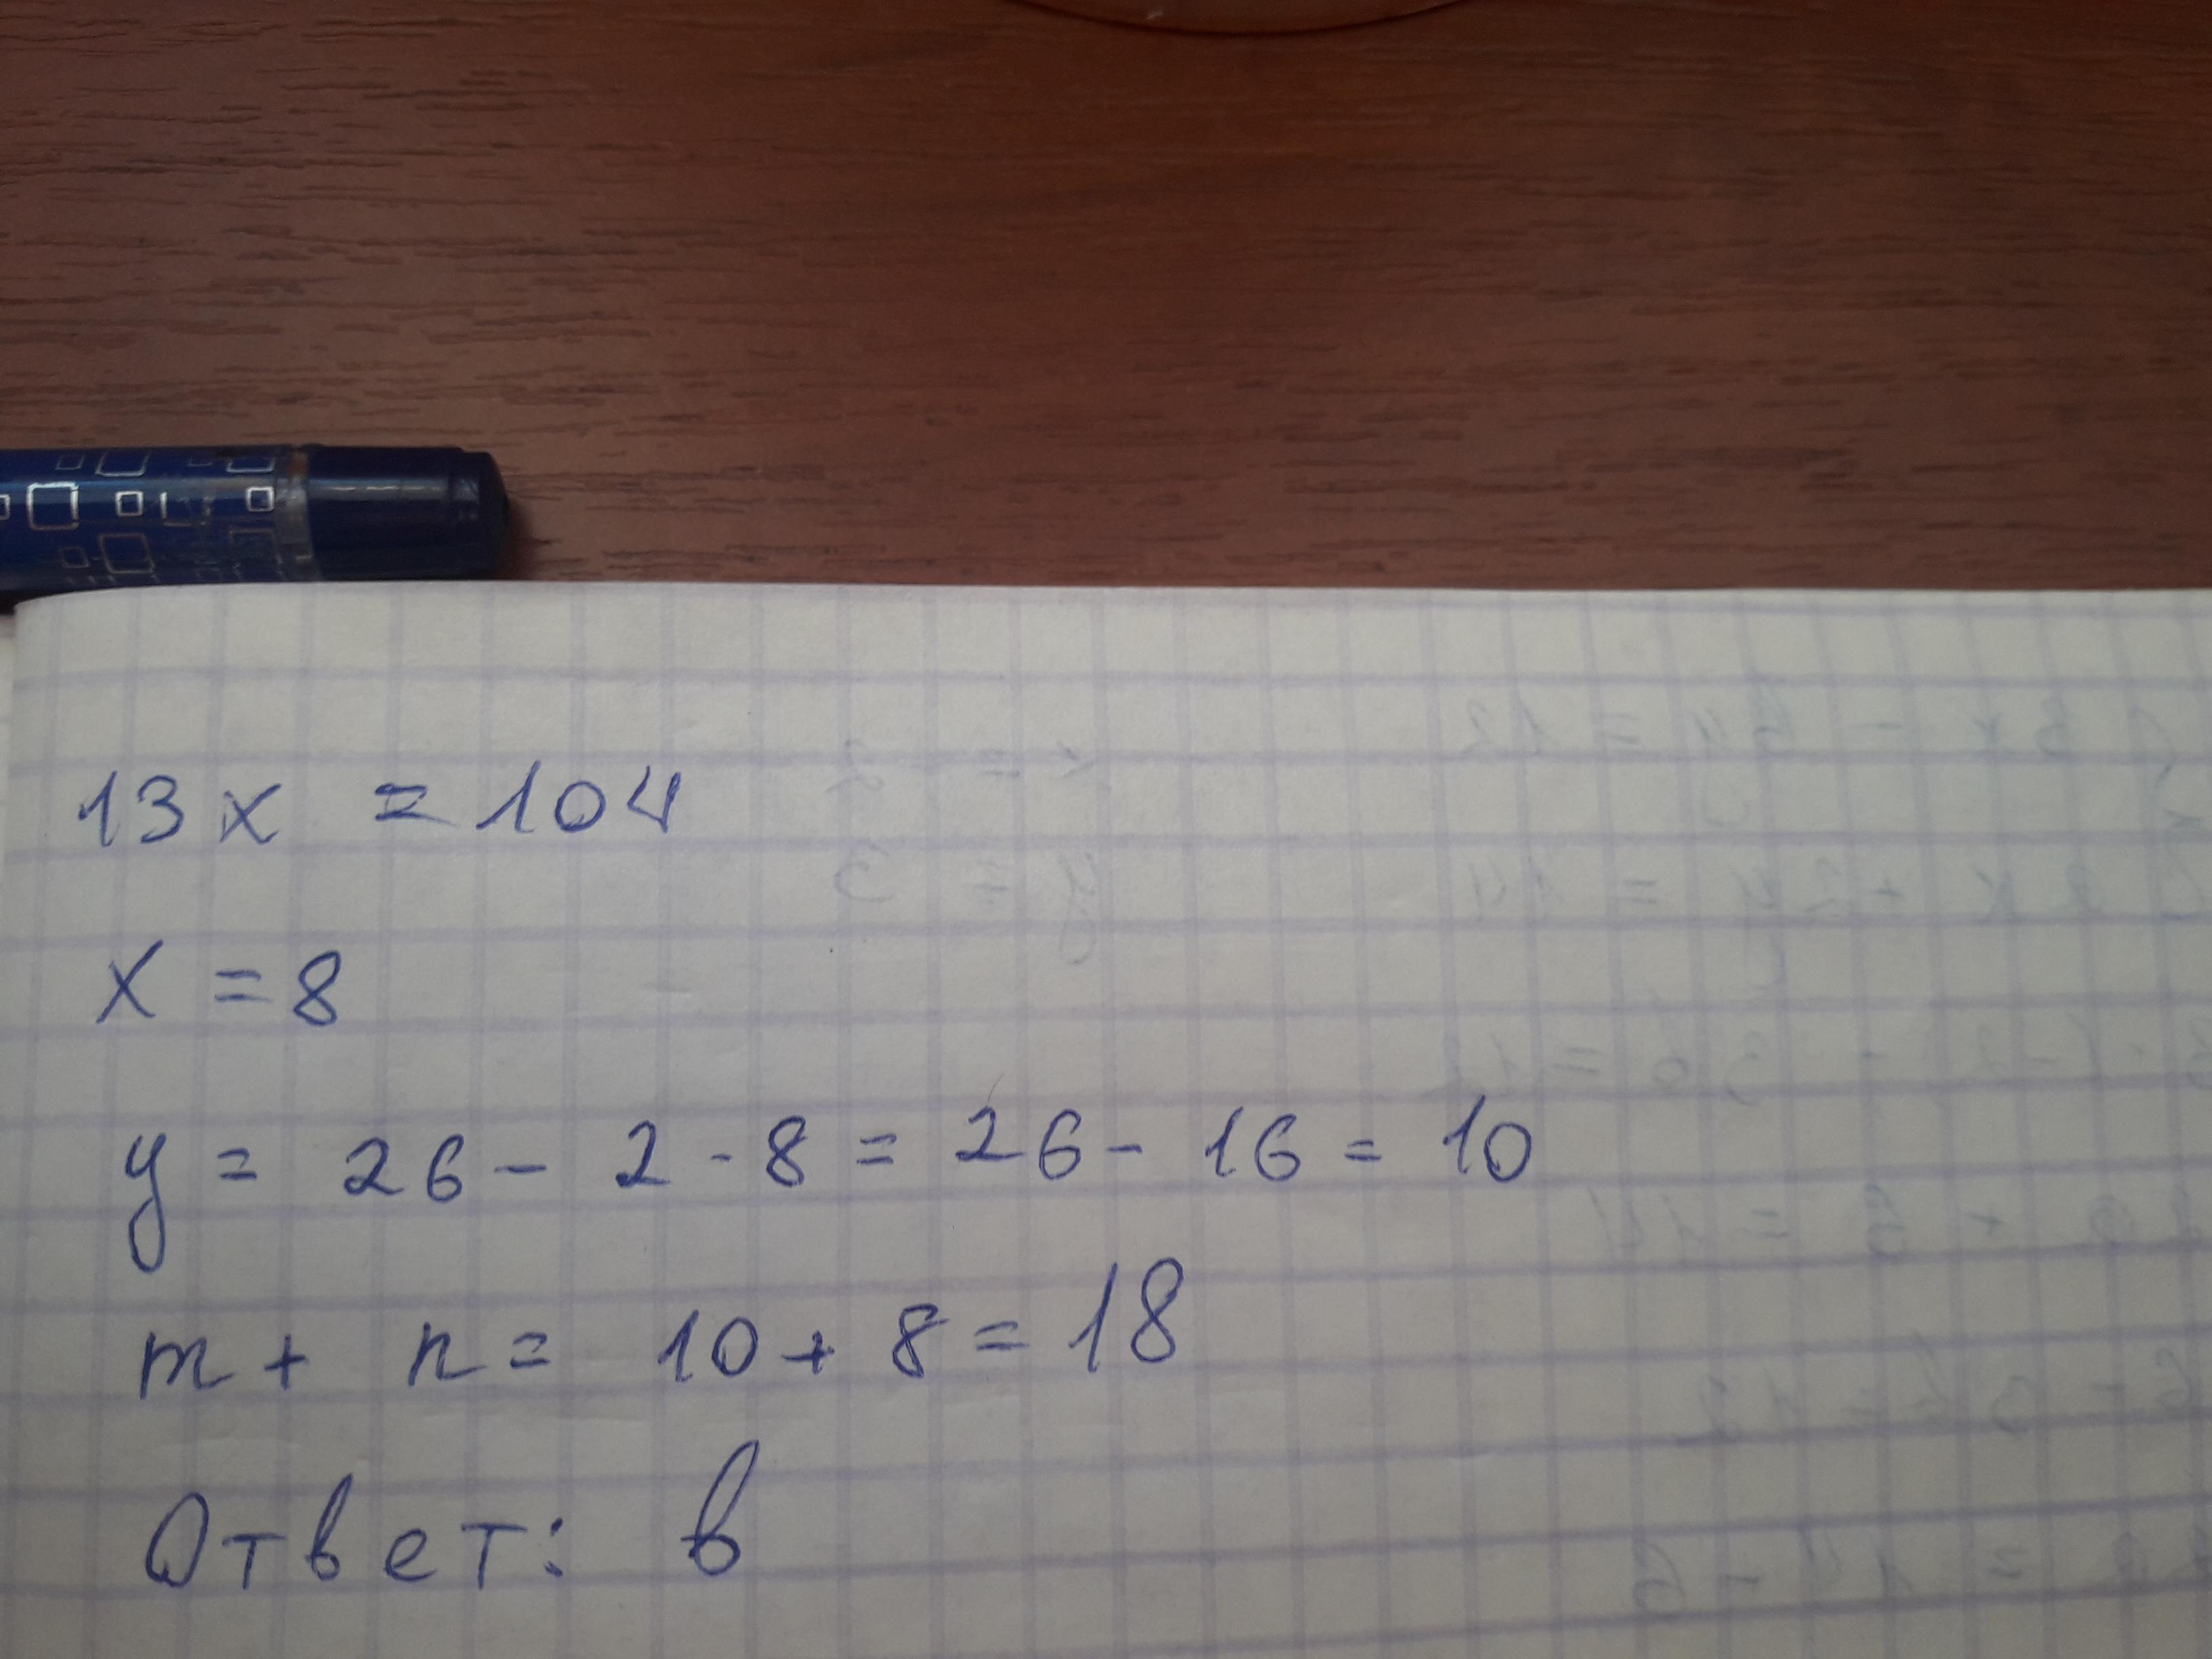 13x = 104
x = 8
y = 26 - 2 · 8 = 26 - 16 = 10
m + n = 10 + 8 = 18
Ответ: в